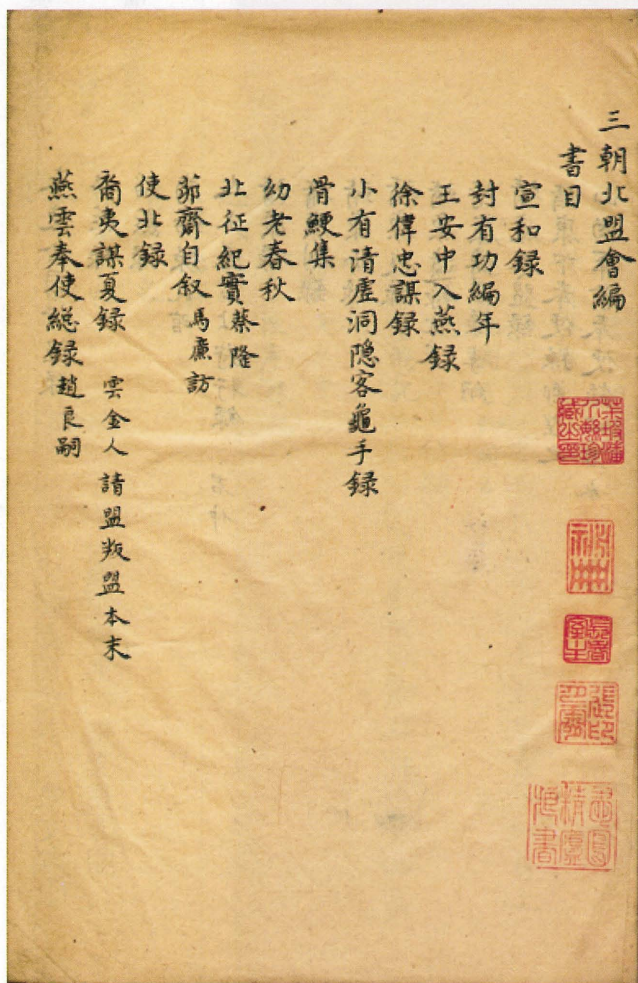 三朝北盟會編
書目
宣和録
封有功編年
王安中入燕録
徐偉忠謀録
小有清虛洞隐客龜手録
骨鯁集
幼老春秋
北征紀實蔡隆
茆齋自叙馬廉訪
使北録
裔夷謀夏録 雲金人請盟叛盟本末
燕雲奉使總録趙良嗣